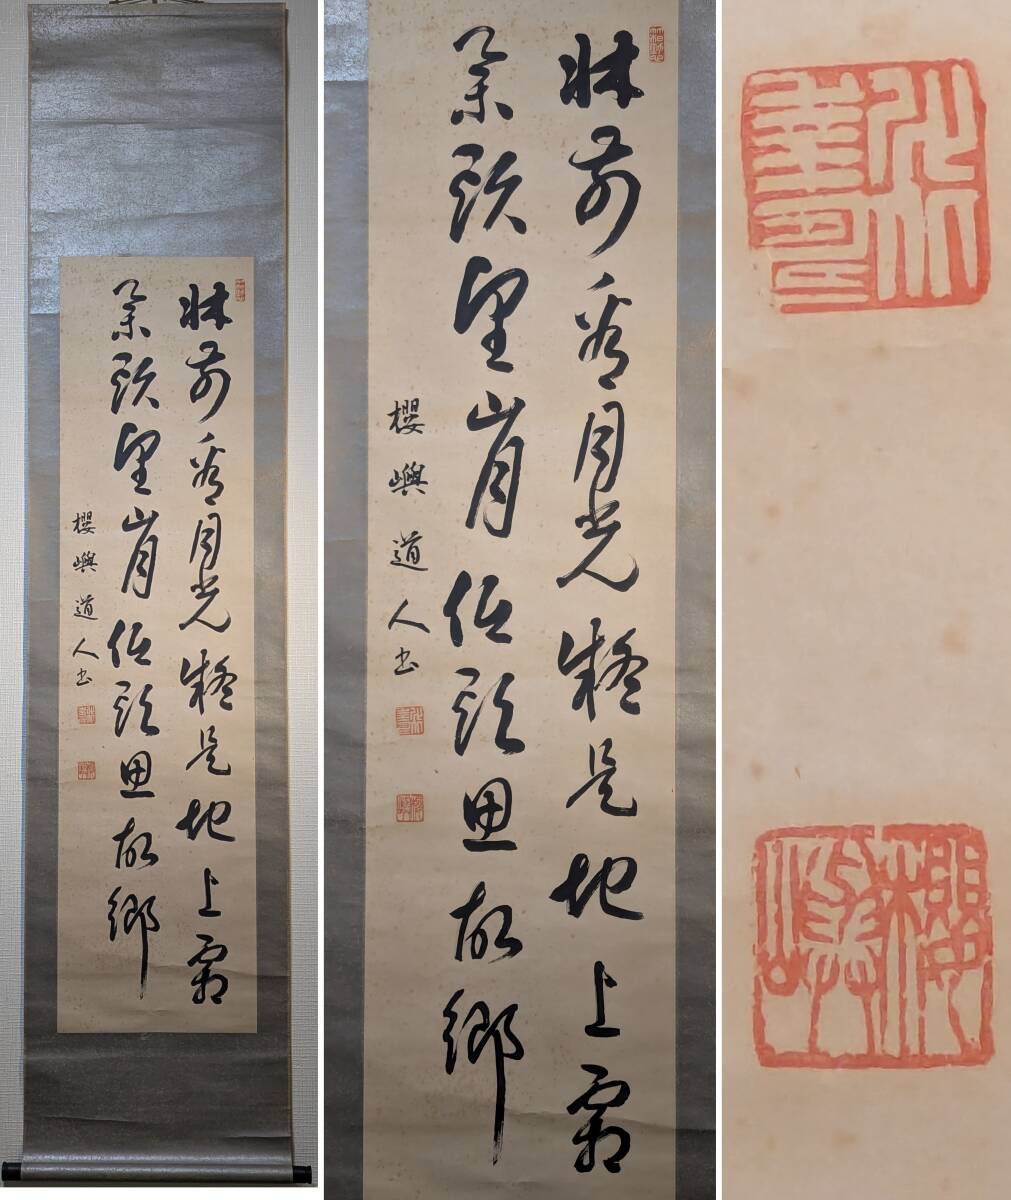 牀前看月光疑是地上霜
舉頭望山月低頭思故鄉
櫻嶼道人書
牀前看月光疑是地上霜
舉頭望山月低頭思故鄉
櫻嶼道人書
櫻嶼